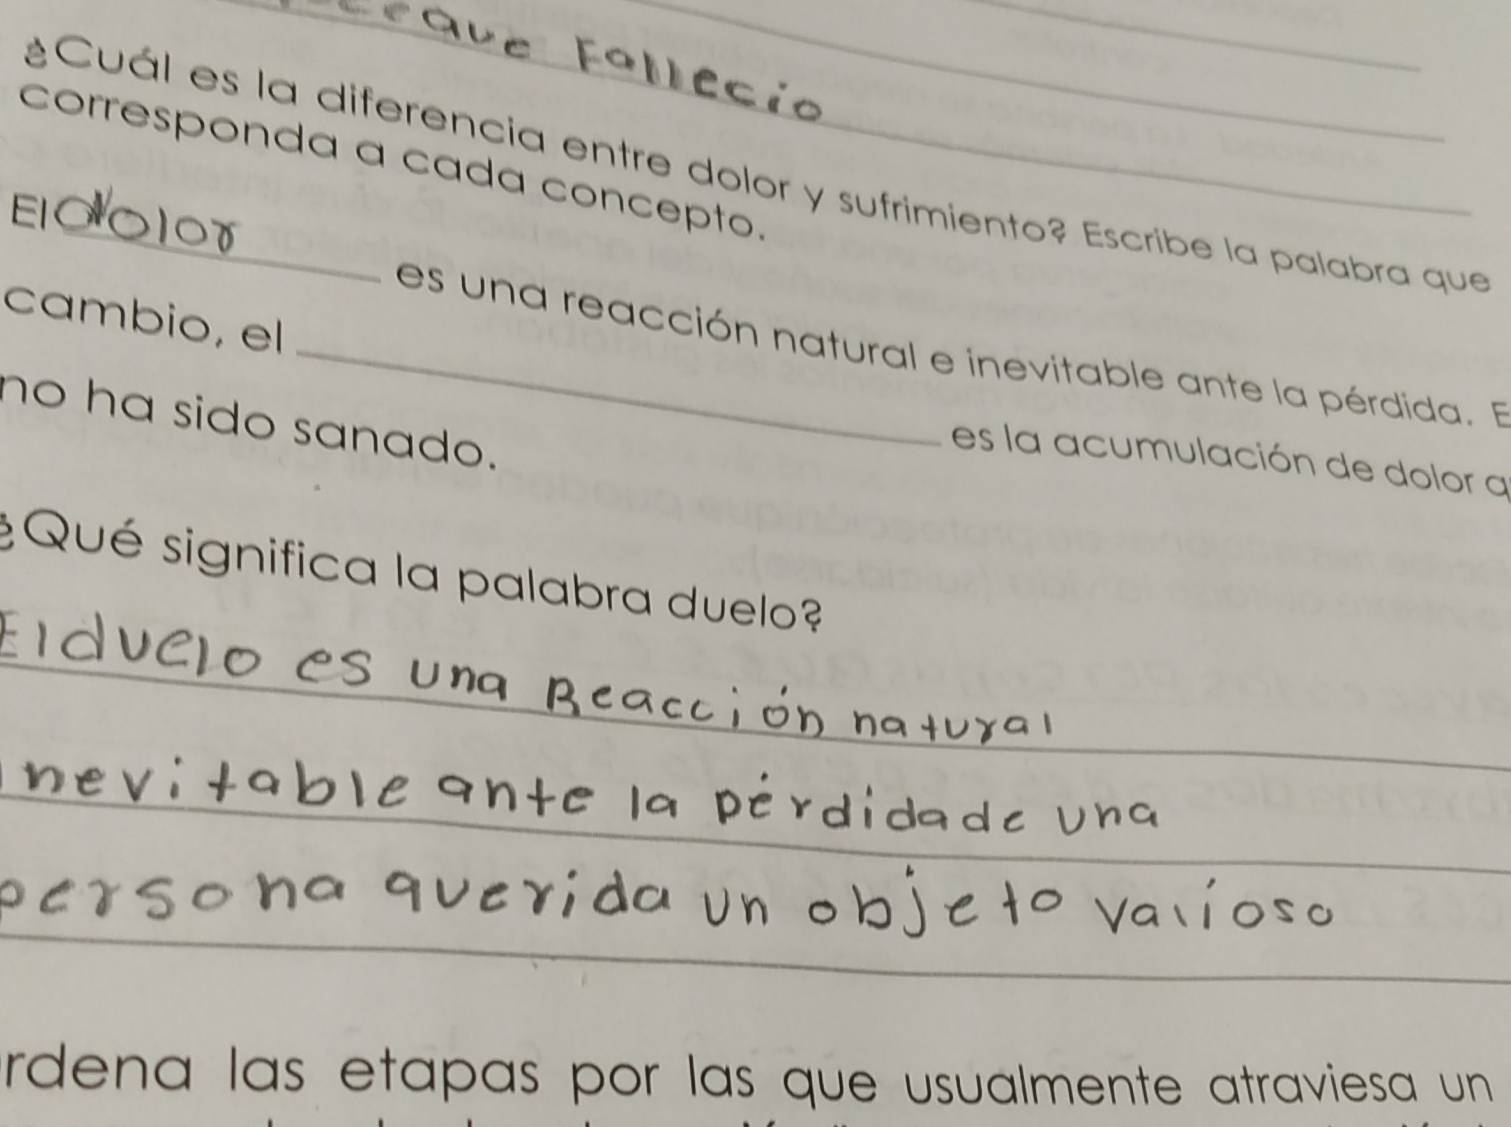 que Fallecio
¿Cuál es la diferencia entre dolor y sufrimiento? Escribe la palabra que
corresponda a cada concepto.
El dolor es una reacción natural e inevitable ante la pérdida. E
cambio, el ______ es la acumulación de dolor q
no ha sido sanado.
¿Qué significa la palabra duelo?
El duelo es una Reacción natural
inevitable ante la pérdida de una
persona querida un objeto valioso
rdena las etapas por las que usualmente atraviesa un